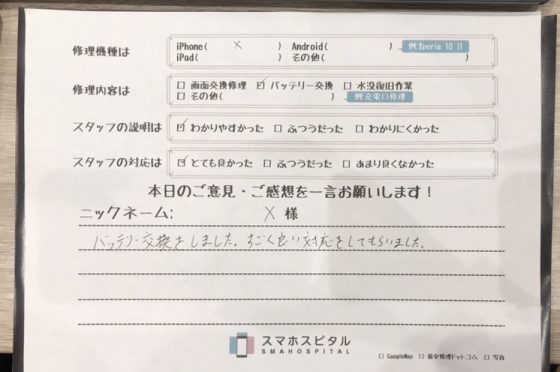 修理機種は
iPhone( X ) Android( ) 例:Xperia 10 II
iPad( ) その他( )
修理内容は
□ 画面交換修理 ☑ バッテリー交換 □ 水没復旧作業
□ その他( ) 例:充電口修理
スタッフの説明は ☑ わかりやすかった □ ふつうだった □ わかりにくかった
スタッフの対応は ☑ とても良かった □ ふつうだった □ あまり良くなかった
本日のご意見・ご感想を一言お願いします！
ニックネーム: X 様
バッテリー交換をしました。すごく良い対応をしてもらいました。
スマホスピタル
SMAHOSPITAL
□ GoogleMap □ 最安修理ドットコム □ 写真